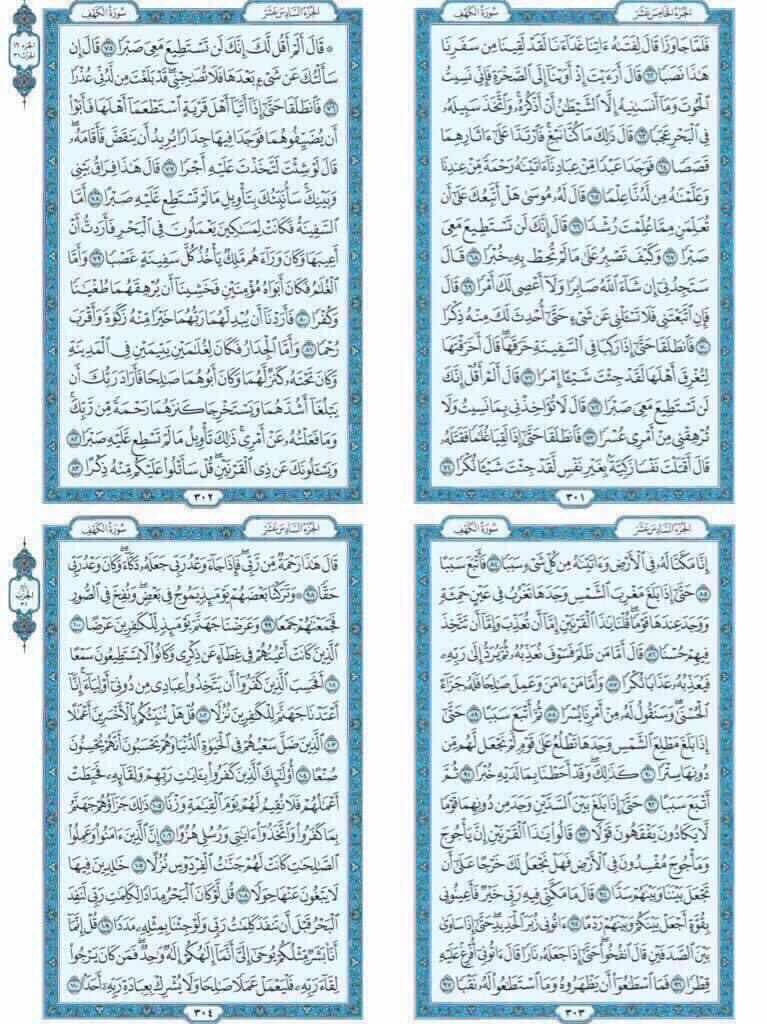 الجزء الخامس عشر
سورة الكهف
فَلَمَّا جَاوَزَا قَالَ لِفَتَىٰهُ ءَاتِنَا غَدَآءَنَا لَقَدْ لَقِينَا مِن سَفَرِنَا
هَٰذَا نَصَبًا ٦٢ قَالَ أَرَءَيْتَ إِذْ أَوَيْنَآ إِلَى ٱلصَّخْرَةِ فَإِنِّي نَسِيتُ
ٱلْحُوتَ وَمَآ أَنسَىٰنِيهُ إِلَّا ٱلشَّيْطَٰنُ أَنْ أَذْكُرَهُۥ وَٱتَّخَذَ سَبِيلَهُۥ
فِي ٱلْبَحْرِ عَجَبًا ٦٣ قَالَ ذَٰلِكَ مَا كُنَّا نَبْغِ فَٱرْتَدَّا عَلَىٰٓ ءَاثَارِهِمَا
قَصَصًا ٦٤ فَوَجَدَا عَبْدًا مِّنْ عِبَادِنَآ ءَاتَيْنَٰهُ رَحْمَةً مِّنْ عِندِنَا
وَعَلَّمْنَٰهُ مِن لَّدُنَّا عِلْمًا ٦٥ قَالَ لَهُۥ مُوسَىٰ هَلْ أَتَّبِعُكَ عَلَىٰٓ أَن
تُعَلِّمَنِ مِمَّا عُلِّمْتَ رُشْدًا ٦٦ قَالَ إِنَّكَ لَن تَسْتَطِيعَ مَعِيَ
صَبْرًا ٦٧ وَكَيْفَ تَصْبِرُ عَلَىٰ مَا لَمْ تُحِطْ بِهِۦ خُبْرًا ٦٨ قَالَ
سَتَجِدُنِيٓ إِن شَآءَ ٱللَّهُ صَابِرًا وَلَآ أَعْصِي لَكَ أَمْرًا ٦٩ قَالَ
فَإِنِ ٱتَّبَعْتَنِي فَلَا تَسْـَٔلْنِي عَن شَيْءٍ حَتَّىٰٓ أُحْدِثَ لَكَ مِنْهُ ذِكْرًا
٧٠ فَٱنطَلَقَا حَتَّىٰٓ إِذَا رَكِبَا فِي ٱلسَّفِينَةِ خَرَقَهَا قَالَ أَخَرَقْتَهَا
لِتُغْرِقَ أَهْلَهَا لَقَدْ جِئْتَ شَيْـًٔا إِمْرًا ٧١ قَالَ أَلَمْ أَقُلْ إِنَّكَ
لَن تَسْتَطِيعَ مَعِيَ صَبْرًا ٧٢ قَالَ لَا تُؤَاخِذْنِي بِمَا نَسِيتُ وَلَا
تُرْهِقْنِي مِنْ أَمْرِي عُسْرًا ٧٣ فَٱنطَلَقَا حَتَّىٰٓ إِذَا لَقِيَا غُلَٰمًا فَقَتَلَهُۥ
قَالَ أَقَتَلْتَ نَفْسًا زَكِيَّةًۢ بِغَيْرِ نَفْسٍ لَّقَدْ جِئْتَ شَيْـًٔا نُّكْرًا ٧٤
٣٠١
الجزء السادس عشر
سورة الكهف
الجزء ١٦
الحزب ٣١
۞ قَالَ أَلَمْ أَقُل لَّكَ إِنَّكَ لَن تَسْتَطِيعَ مَعِيَ صَبْرًا ٧٥ قَالَ إِن
سَأَلْتُكَ عَن شَيْءٍۭ بَعْدَهَا فَلَا تُصَٰحِبْنِي قَدْ بَلَغْتَ مِن لَّدُنِّي عُذْرًا
٧٦ فَٱنطَلَقَا حَتَّىٰٓ إِذَآ أَتَيَآ أَهْلَ قَرْيَةٍ ٱسْتَطْعَمَآ أَهْلَهَا فَأَبَوْا۟
أَن يُضَيِّفُوهُمَا فَوَجَدَا فِيهَا جِدَارًا يُرِيدُ أَن يَنقَضَّ فَأَقَامَهُۥ
قَالَ لَوْ شِئْتَ لَتَّخَذْتَ عَلَيْهِ أَجْرًا ٧٧ قَالَ هَٰذَا فِرَاقُ بَيْنِي
وَبَيْنِكَ سَأُنَبِّئُكَ بِتَأْوِيلِ مَا لَمْ تَسْتَطِع عَّلَيْهِ صَبْرًا ٧٨ أَمَّا
ٱلسَّفِينَةُ فَكَانَتْ لِمَسَٰكِينَ يَعْمَلُونَ فِي ٱلْبَحْرِ فَأَرَدتُّ أَنْ
أَعِيبَهَا وَكَانَ وَرَآءَهُم مَّلِكٌ يَأْخُذُ كُلَّ سَفِينَةٍ غَصْبًا ٧٩ وَأَمَّا
ٱلْغُلَٰمُ فَكَانَ أَبَوَاهُ مُؤْمِنَيْنِ فَخَشِينَآ أَن يُرْهِقَهُمَا طُغْيَٰنًا
وَكُفْرًا ٨٠ فَأَرَدْنَآ أَن يُبْدِلَهُمَا رَبُّهُمَا خَيْرًا مِّنْهُ زَكَوٰةً وَأَقْرَبَ
رُحْمًا ٨١ وَأَمَّا ٱلْجِدَارُ فَكَانَ لِغُلَٰمَيْنِ يَتِيمَيْنِ فِي ٱلْمَدِينَةِ
وَكَانَ تَحْتَهُۥ كَنزٌ لَّهُمَا وَكَانَ أَبُوهُمَا صَٰلِحًا فَأَرَادَ رَبُّكَ أَن
يَبْلُغَآ أَشُدَّهُمَا وَيَسْتَخْرِجَا كَنزَهُمَا رَحْمَةً مِّن رَّبِّكَ
وَمَا فَعَلْتُهُۥ عَنْ أَمْرِي ذَٰلِكَ تَأْوِيلُ مَا لَمْ تَسْطِع عَّلَيْهِ صَبْرًا ٨٢
وَيَسْـَٔلُونَكَ عَن ذِي ٱلْقَرْنَيْنِ قُلْ سَأَتْلُوا۟ عَلَيْكُم مِّنْهُ ذِكْرًا ٨٣
٣٠٢
الجزء السادس عشر
سورة الكهف
إِنَّا مَكَّنَّا لَهُۥ فِي ٱلْأَرْضِ وَءَاتَيْنَٰهُ مِن كُلِّ شَيْءٍ سَبَبًا ٨٤ فَأَتْبَعَ سَبَبًا
٨٥ حَتَّىٰٓ إِذَا بَلَغَ مَغْرِبَ ٱلشَّمْسِ وَجَدَهَا تَغْرُبُ فِي عَيْنٍ حَمِئَةٍ
وَوَجَدَ عِندَهَا قَوْمًا قُلْنَا يَٰذَا ٱلْقَرْنَيْنِ إِمَّآ أَن تُعَذِّبَ وَإِمَّآ أَن تَتَّخِذَ
فِيهِمْ حُسْنًا ٨٦ قَالَ أَمَّا مَن ظَلَمَ فَسَوْفَ نُعَذِّبُهُۥ ثُمَّ يُرَدُّ إِلَىٰ رَبِّهِۦ
فَيُعَذِّبُهُۥ عَذَابًا نُّكْرًا ٨٧ وَأَمَّا مَنْ ءَامَنَ وَعَمِلَ صَٰلِحًا فَلَهُۥ جَزَآءً
ٱلْحُسْنَىٰ وَسَنَقُولُ لَهُۥ مِنْ أَمْرِنَا يُسْرًا ٨٨ ثُمَّ أَتْبَعَ سَبَبًا ٨٩ حَتَّىٰٓ
إِذَا بَلَغَ مَطْلِعَ ٱلشَّمْسِ وَجَدَهَا تَطْلُعُ عَلَىٰ قَوْمٍ لَّمْ نَجْعَل لَّهُم مِّن
دُونِهَا سِتْرًا ٩٠ كَذَٰلِكَ وَقَدْ أَحَطْنَا بِمَا لَدَيْهِ خُبْرًا ٩١ ثُمَّ
أَتْبَعَ سَبَبًا ٩٢ حَتَّىٰٓ إِذَا بَلَغَ بَيْنَ ٱلسَّدَّيْنِ وَجَدَ مِن دُونِهِمَا قَوْمًا
لَّا يَكَادُونَ يَفْقَهُونَ قَوْلًا ٩٣ قَالُوا۟ يَٰذَا ٱلْقَرْنَيْنِ إِنَّ يَأْجُوجَ
وَمَأْجُوجَ مُفْسِدُونَ فِي ٱلْأَرْضِ فَهَلْ نَجْعَلُ لَكَ خَرْجًا عَلَىٰٓ أَن
تَجْعَلَ بَيْنَنَا وَبَيْنَهُمْ سَدًّا ٩٤ قَالَ مَا مَكَّنِّي فِيهِ رَبِّي خَيْرٌ فَأَعِينُونِي
بِقُوَّةٍ أَجْعَلْ بَيْنَكُمْ وَبَيْنَهُمْ رَدْمًا ٩٥ ءَاتُونِي زُبَرَ ٱلْحَدِيدِ حَتَّىٰٓ إِذَا سَاوَىٰ
بَيْنَ ٱلصَّدَفَيْنِ قَالَ ٱنفُخُوا۟ حَتَّىٰٓ إِذَا جَعَلَهُۥ نَارًا قَالَ ءَاتُونِيٓ أُفْرِغْ عَلَيْهِ
قِطْرًا ٩٦ فَمَا ٱسْطَٰعُوٓا۟ أَن يَظْهَرُوهُ وَمَا ٱسْتَطَٰعُوا۟ لَهُۥ نَقْبًا ٩٧
٣٠٣
الجزء السادس عشر
سورة الكهف
الحزب
٣١
قَالَ هَٰذَا رَحْمَةٌ مِّن رَّبِّي فَإِذَا جَآءَ وَعْدُ رَبِّي جَعَلَهُۥ دَكَّآءَ وَكَانَ وَعْدُ رَبِّي
حَقًّا ٩٨ ۞ وَتَرَكْنَا بَعْضَهُمْ يَوْمَئِذٍ يَمُوجُ فِي بَعْضٍ وَنُفِخَ فِي ٱلصُّورِ
فَجَمَعْنَٰهُمْ جَمْعًا ٩٩ وَعَرَضْنَا جَهَنَّمَ يَوْمَئِذٍ لِّلْكَٰفِرِينَ عَرْضًا ١٠٠
ٱلَّذِينَ كَانَتْ أَعْيُنُهُمْ فِي غِطَآءٍ عَن ذِكْرِي وَكَانُوا۟ لَا يَسْتَطِيعُونَ سَمْعًا
١٠١ أَفَحَسِبَ ٱلَّذِينَ كَفَرُوٓا۟ أَن يَتَّخِذُوا۟ عِبَادِي مِن دُونِيٓ أَوْلِيَآءَ إِنَّآ
أَعْتَدْنَا جَهَنَّمَ لِلْكَٰفِرِينَ نُزُلًا ١٠٢ قُلْ هَلْ نُنَبِّئُكُم بِٱلْأَخْسَرِينَ أَعْمَٰلًا
١٠٣ ٱلَّذِينَ ضَلَّ سَعْيُهُمْ فِي ٱلْحَيَوٰةِ ٱلدُّنْيَا وَهُمْ يَحْسَبُونَ أَنَّهُمْ يُحْسِنُونَ
صُنْعًا ١٠٤ أُو۟لَٰٓئِكَ ٱلَّذِينَ كَفَرُوا۟ بِـَٔايَٰتِ رَبِّهِمْ وَلِقَآئِهِۦ فَحَبِطَتْ
أَعْمَٰلُهُمْ فَلَا نُقِيمُ لَهُمْ يَوْمَ ٱلْقِيَٰمَةِ وَزْنًا ١٠٥ ذَٰلِكَ جَزَآؤُهُمْ جَهَنَّمُ
بِمَا كَفَرُوا۟ وَٱتَّخَذُوٓا۟ ءَايَٰتِي وَرُسُلِي هُزُوًا ١٠٦ إِنَّ ٱلَّذِينَ ءَامَنُوا۟ وَعَمِلُوا۟
ٱلصَّٰلِحَٰتِ كَانَتْ لَهُمْ جَنَّٰتُ ٱلْفِرْدَوْسِ نُزُلًا ١٠٧ خَٰلِدِينَ فِيهَا
لَا يَبْغُونَ عَنْهَا حِوَلًا ١٠٨ قُل لَّوْ كَانَ ٱلْبَحْرُ مِدَادًا لِّكَلِمَٰتِ رَبِّي لَنَفِدَ
ٱلْبَحْرُ قَبْلَ أَن تَنفَدَ كَلِمَٰتُ رَبِّي وَلَوْ جِئْنَا بِمِثْلِهِۦ مَدَدًا ١٠٩ قُلْ إِنَّمَآ
أَنَا۠ بَشَرٌ مِّثْلُكُمْ يُوحَىٰٓ إِلَيَّ أَنَّمَآ إِلَٰهُكُمْ إِلَٰهٌ وَٰحِدٌ فَمَن كَانَ يَرْجُوا۟
لِقَآءَ رَبِّهِۦ فَلْيَعْمَلْ عَمَلًا صَٰلِحًا وَلَا يُشْرِكْ بِعِبَادَةِ رَبِّهِۦٓ أَحَدًۢا ١١٠
٣٠٤